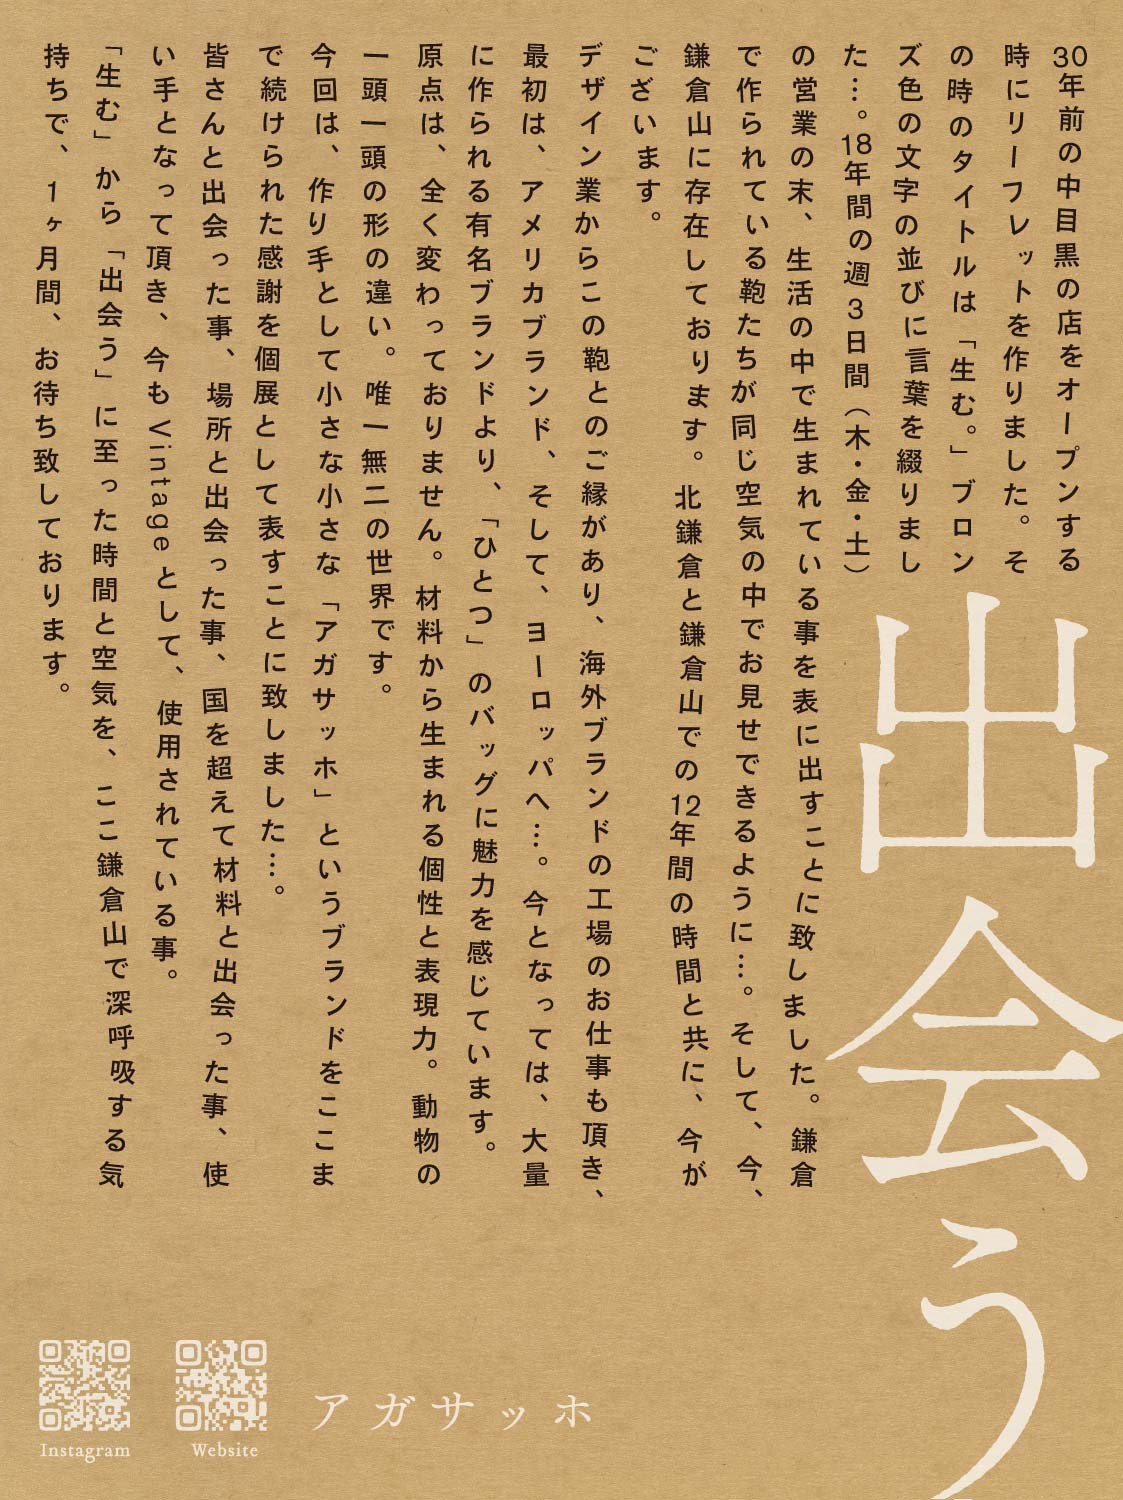 30年前の中目黒の店をオープンする
時にリーフレットを作りました。そ
の時のタイトルは「生む。」ブロン
ズ色の文字の並びに言葉を綴りまし
た…。18年間の週3日間（木・金・土）
の営業の末、生活の中で生まれている事を表に出すことに致しました。鎌倉
で作られている鞄たちが同じ空気の中でお見せできるように…。そして、今、
鎌倉山に存在しております。北鎌倉と鎌倉山での12年間の時間と共に、今が
ございます。
デザイン業からこの鞄とのご縁があり、海外ブランドの工場のお仕事も頂き、
最初は、アメリカブランド、そして、ヨーロッパへ…。今となっては、大量
に作られる有名ブランドより、「ひとつ」のバッグに魅力を感じています。
原点は、全く変わっておりません。材料から生まれる個性と表現力。動物の
一頭一頭の形の違い。唯一無二の世界です。
今回は、作り手として小さな小さな「アガサッホ」というブランドをここま
で続けられた感謝を個展として表すことに致しました…。
皆さんと出会った事、場所と出会った事、国を超えて材料と出会った事、使
い手となって頂き、今もVintageとして、使用されている事。
「生む」から「出会う」に至った時間と空気を、ここ鎌倉山で深呼吸する気
持ちで、1ヶ月間、お待ち致しております。
出会う
アガサッホ
Instagram
Website